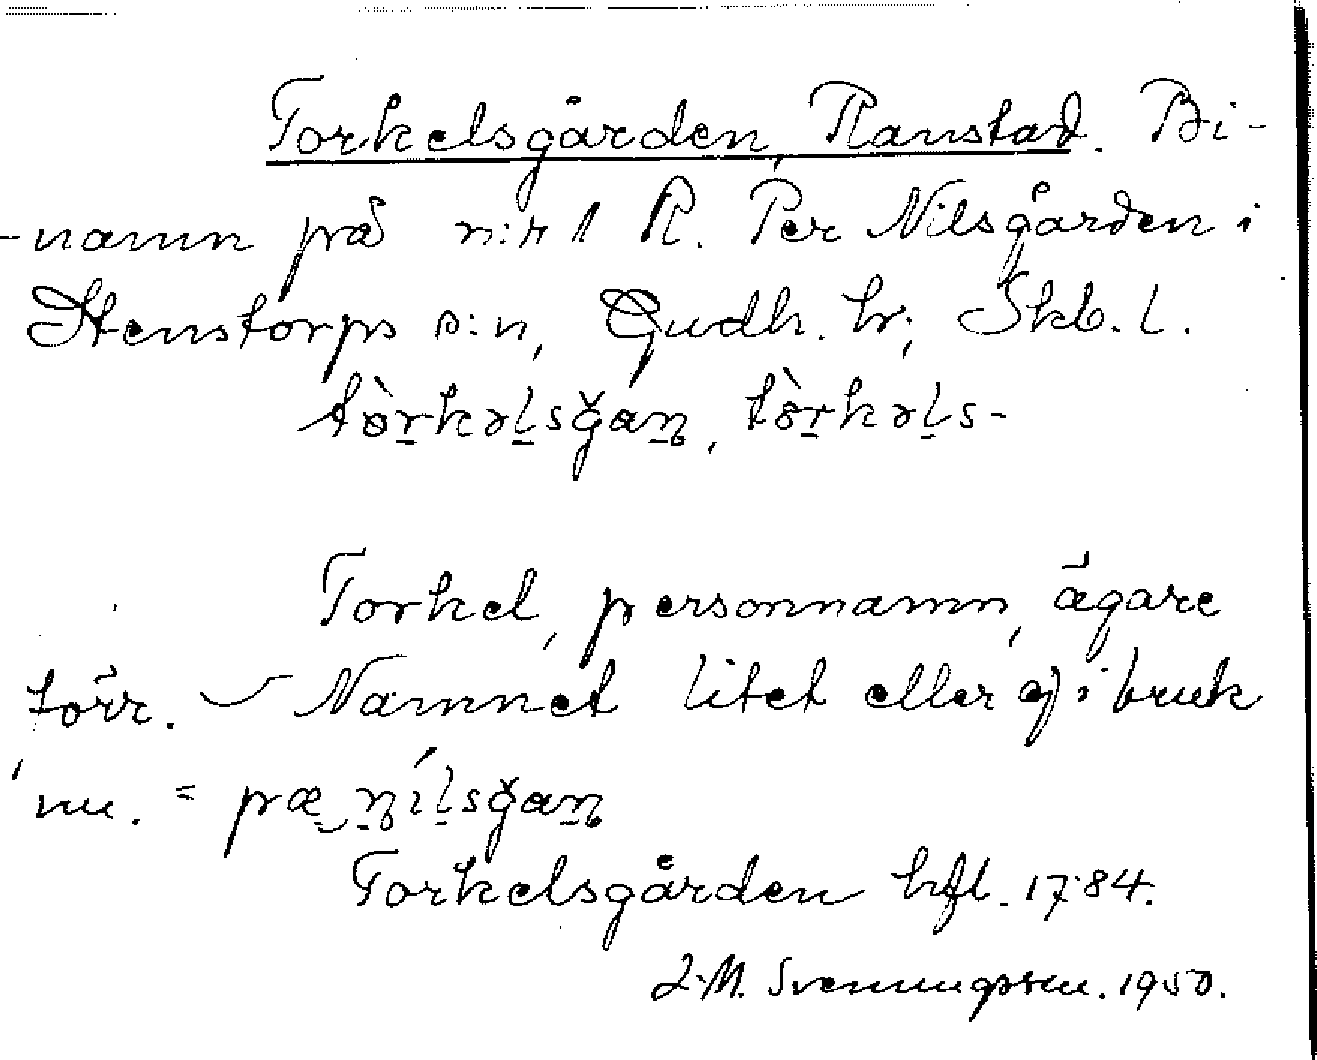 Torkelsgården, Ranstad. Bi-
-namn på n:r 1 R. Per Nilsgården i
Stenstorps s:n, Gudh. hr; Skb. l.
tòrkəlsğan, tòrkəls-
Torkel, personnamn, ägare
förr. - Namnet litet eller ej i bruk
nu. = præ nílsğan
Torkelsgården hfl. 1784.
J.M. Svenungsson. 1950.